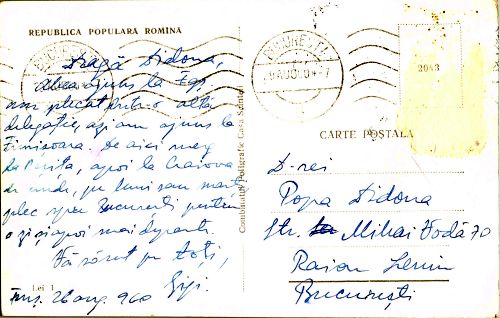 REPUBLICA POPULARA ROMÎNA
Dragă Didona,
Abea ajuns la Fgș,
am plecat într-o altă
delegație, azi am ajuns la
Timișoara. De aici merg
la apoi la Craiova
de unde, pe luni sau marți
plec spre București pentru
o zi și apoi mai departe.
Vă sărut pe toți,
Gigi.
Lei 1
Tmș. 26 aug. 960
Combinatul Poligrafic Casa Scînteii
BUCUREȘTI
2043
CARTE POȘTALĂ
D-rei
Popa Didona
Str. Mihai Vodă 70
Raion Lenin
București